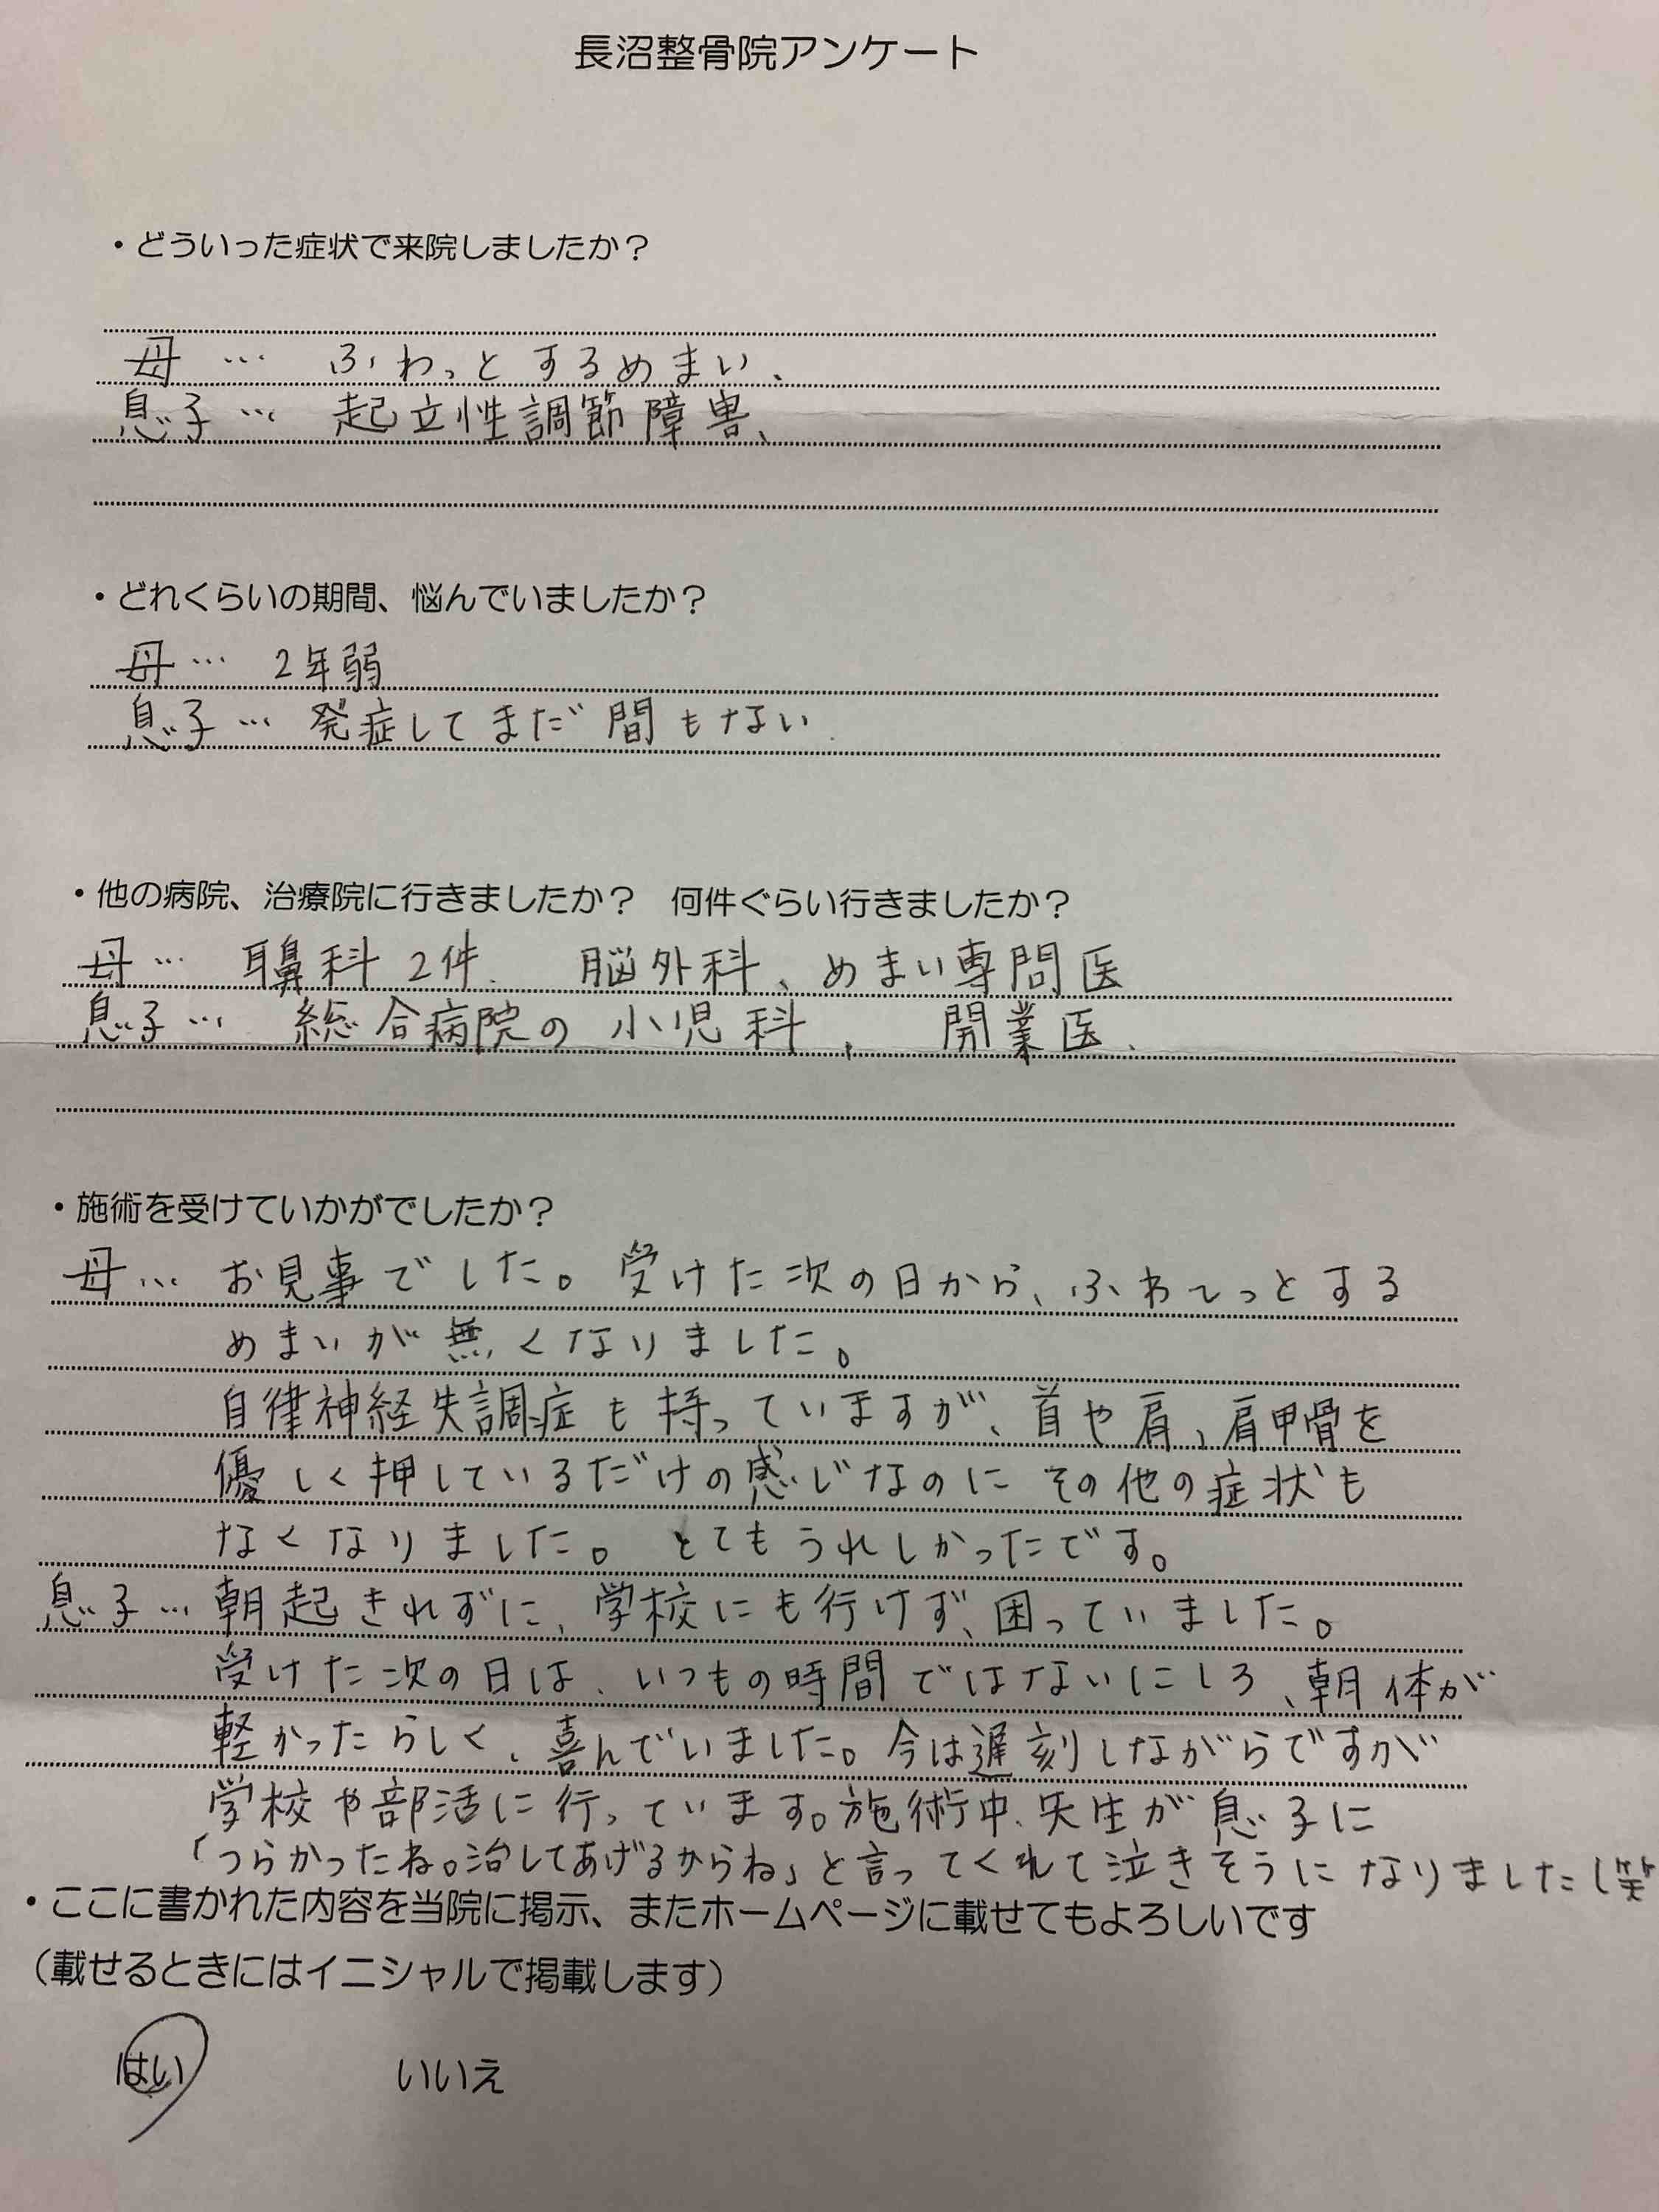 長沼整骨院アンケート
・どういった症状で来院しましたか？
母… ふわっとするめまい、
息子… 起立性調節障害、
・どれくらいの期間、悩んでいましたか？
母… 2年弱
息子… 発症してまだ間もない.
・他の病院、治療院に行きましたか？ 何件ぐらい行きましたか？
母… 耳鼻科2件. 脳外科、めまい専門医
息子… 総合病院の小児科, 開業医.
・施術を受けていかがでしたか？
母… お見事でした。受けた次の日から、ふわ〜っとする
めまいが無くなりました。
自律神経失調症も持っていますが、首や肩、肩甲骨を
優しく押しているだけの感じなのにその他の症状も
なくなりました。とてもうれしかったです。
息子… 朝起きれずに、学校にも行けず、困っていました。
受けた次の日は、いつもの時間ではないにしろ、朝体が
軽かったらしく、喜んでいました。今は遅刻しながらですが
学校や部活に行っています。施術中、先生が息子に
「つらかったね。治してあげるからね」と言ってくれて泣きそうになりました(笑
・ここに書かれた内容を当院に掲示、またホームページに載せてもよろしいです
（載せるときにはイニシャルで掲載します）
はい いいえ